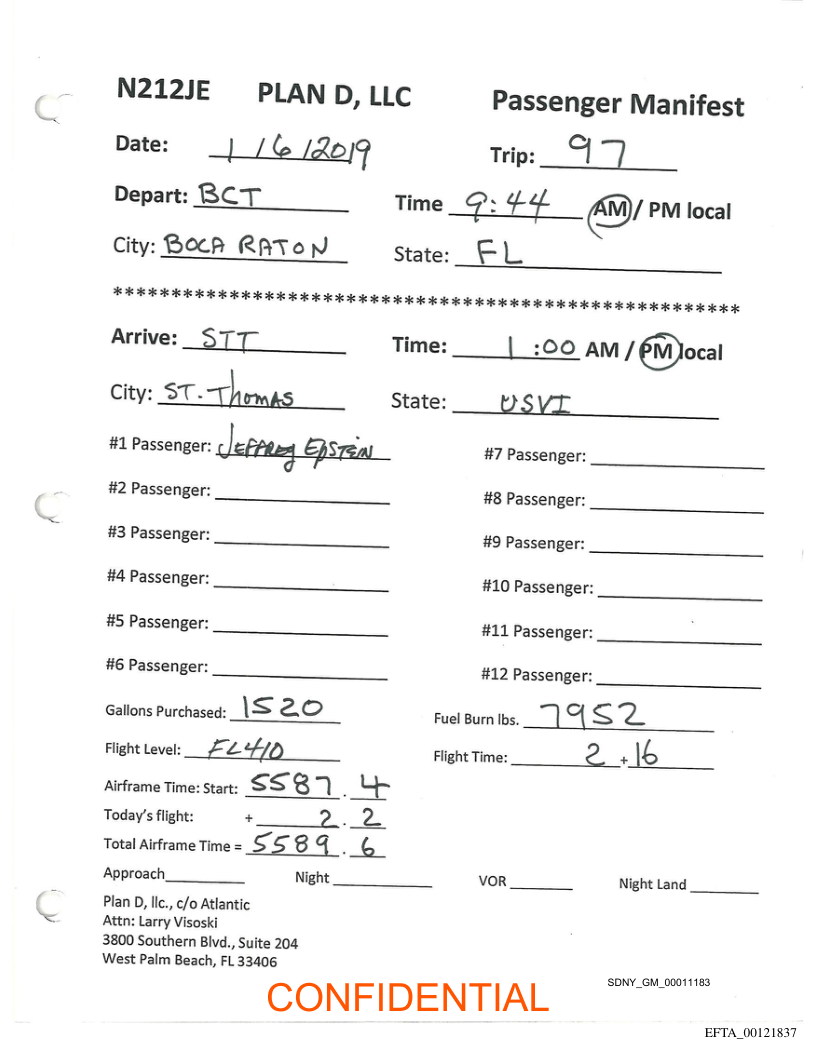 N212JE PLAN D, LLC Passenger Manifest
Date: 1/6/2019 Trip: 97
Depart: BCT Time 9:44 AM / PM local
City: BOCA RATON State: FL
******************************************************
Arrive: STT Time: 1:00 AM / PM local
City: ST. THOMAS State: USVI
#1 Passenger: JEFFREY EPSTEIN #7 Passenger:
#2 Passenger: #8 Passenger:
#3 Passenger: #9 Passenger:
#4 Passenger: #10 Passenger:
#5 Passenger: #11 Passenger:
#6 Passenger: #12 Passenger:
Gallons Purchased: 1520 Fuel Burn lbs. 7952
Flight Level: FL410 Flight Time: 2 + 16
Airframe Time: Start: 5587.4
Today's flight: + 2.2
Total Airframe Time = 5589.6
Approach Night VOR Night Land
Plan D, llc., c/o Atlantic
Attn: Larry Visoski
3800 Southern Blvd., Suite 204
West Palm Beach, FL 33406
SDNY_GM_00011183
CONFIDENTIAL
EFTA_00121837